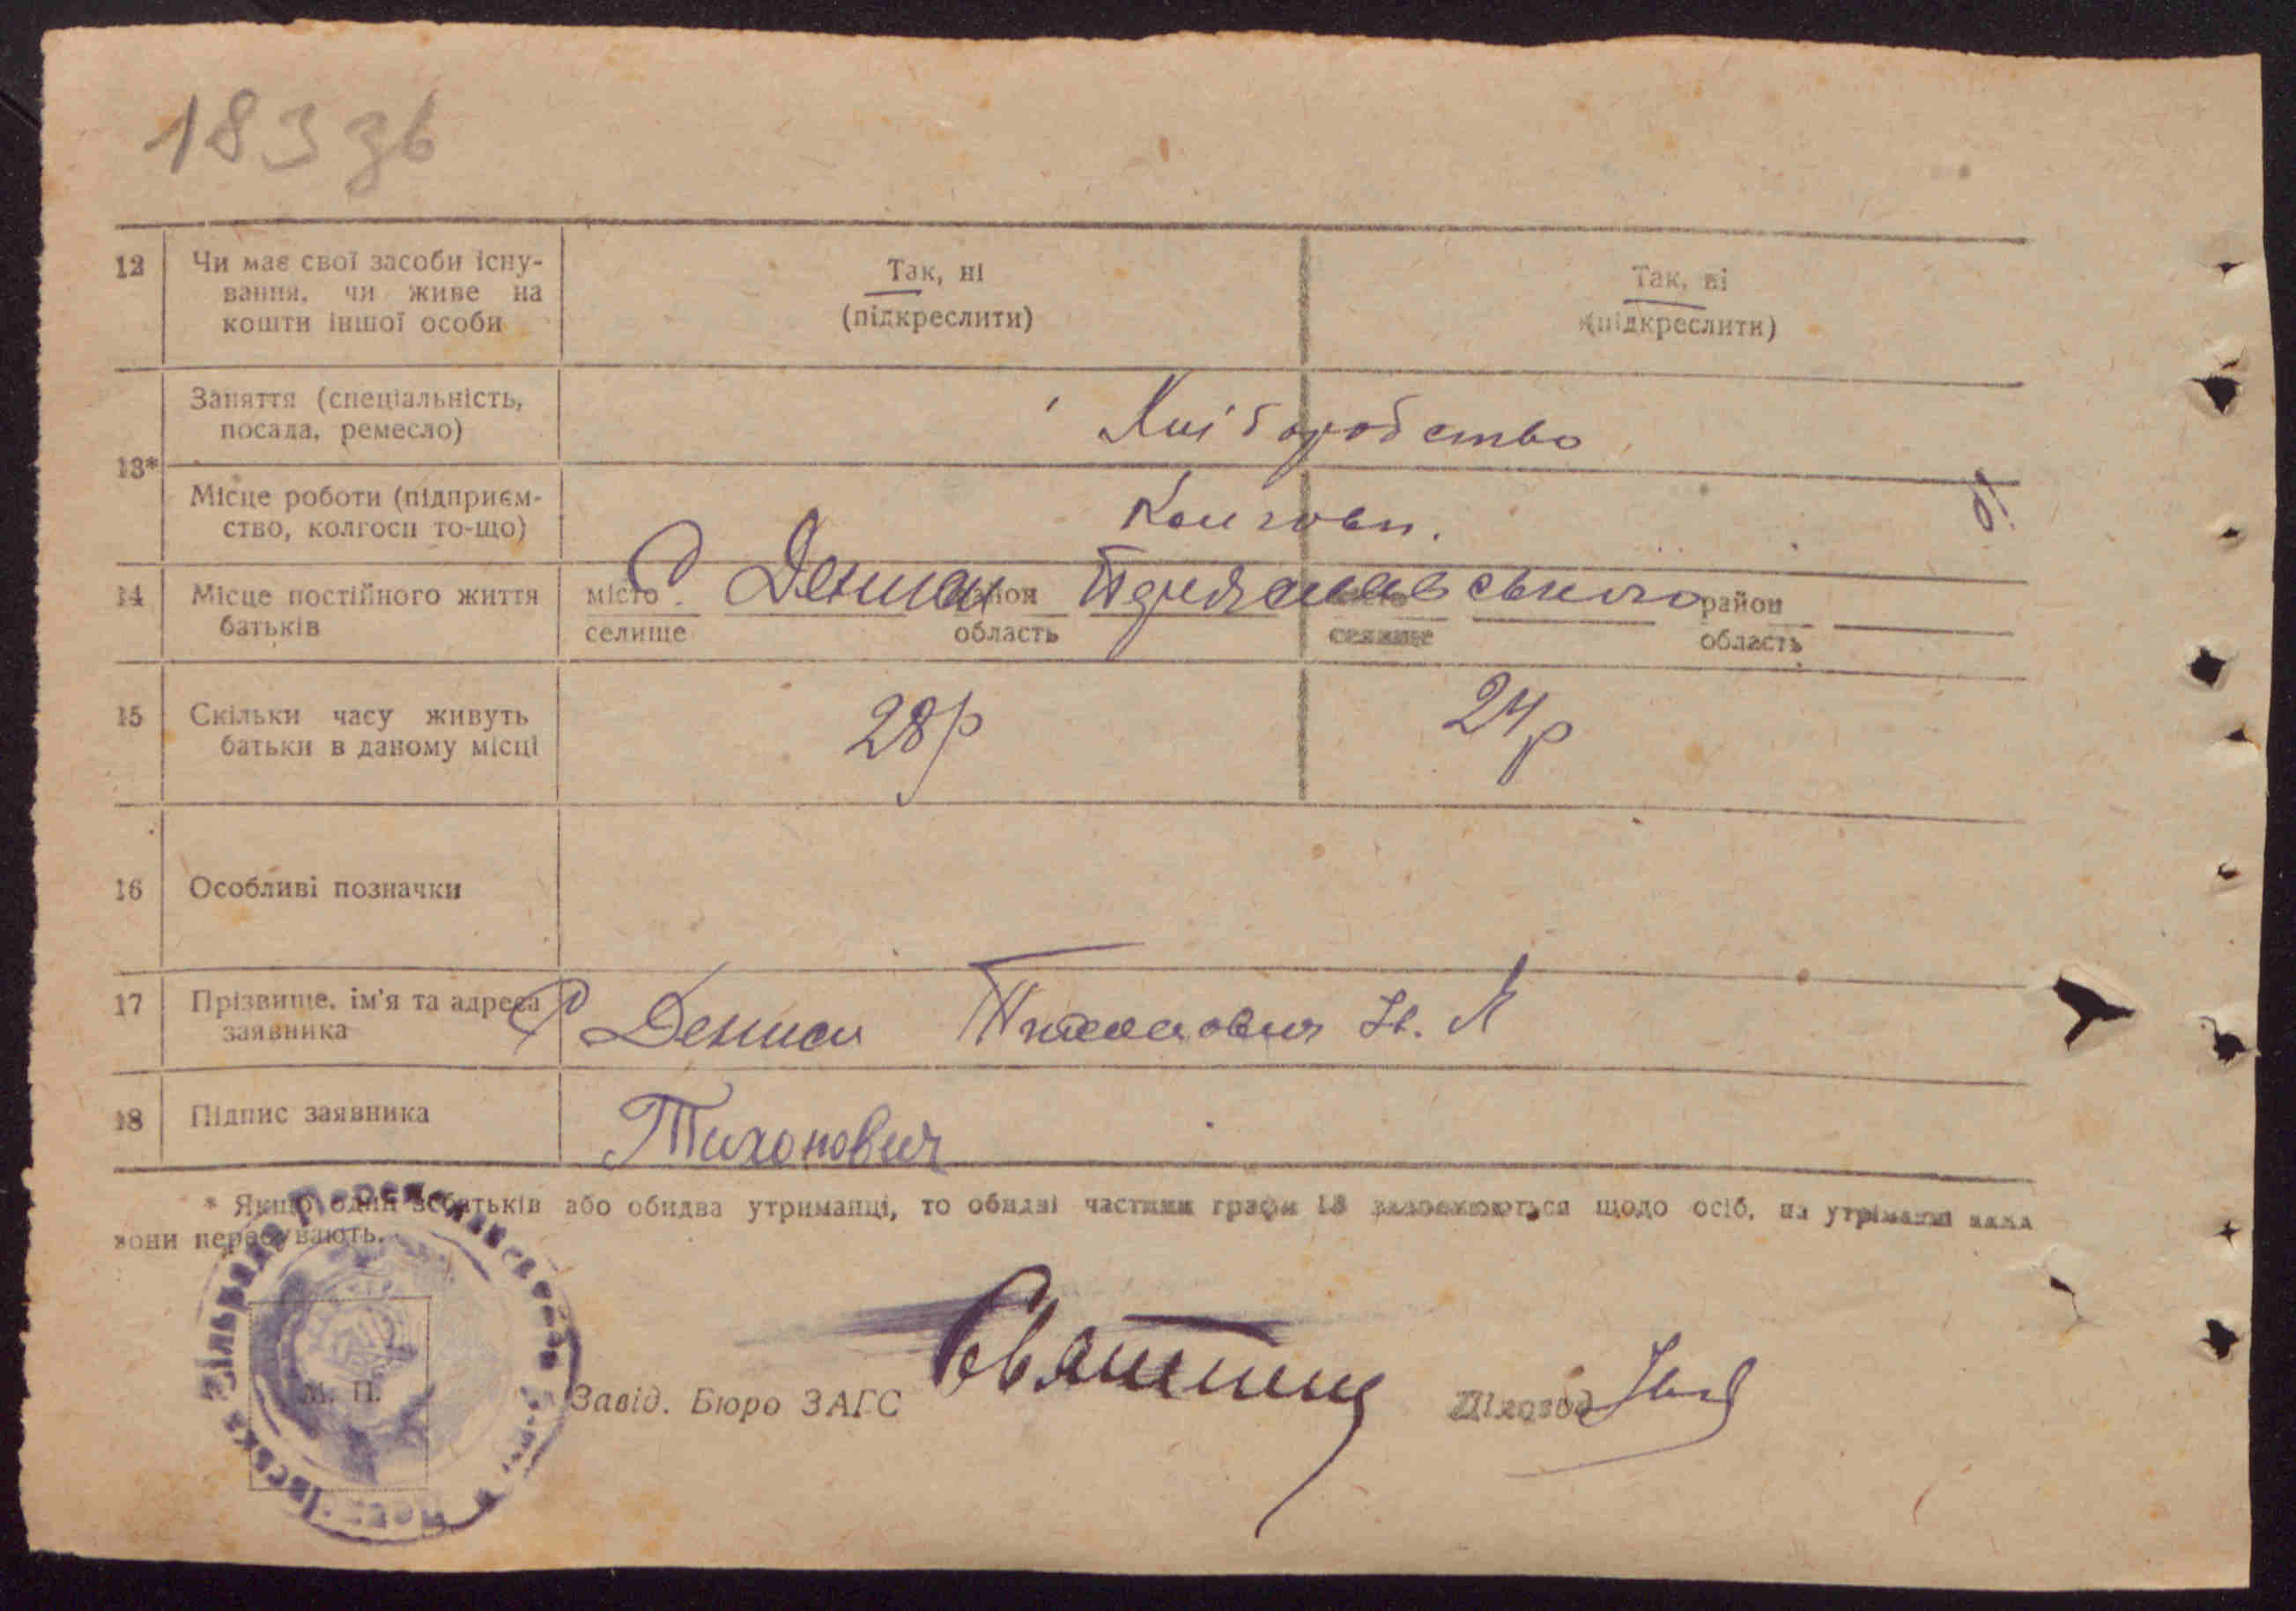 183 зв
12 Чи має свої засоби існу-
вання, чи живе на
кошти іншої особи
Так, ні
(підкреслити)
Так, ні
(підкреслити)
13*
Заняття (спеціальність,
посада, ремесло)
Хліборобство
Місце роботи (підприєм-
ство, колгосп то-що)
Колгосп.
14 Місце постійного життя
батьків
місто
селище
С Деньги
район
область
Переяславського
селище
район
область
15 Скільки часу живуть
батьки в даному місці
28р
24р
16 Особливі позначки
17 Прізвище, ім'я та адреса
заявника
С Деньги Тихонович
18 Підпис заявника
Тихонович
* Якщо один з батьків або обидва утриманці, то обидві частини графи 13 щодо осіб, на утриманні яких
вони перебувають.
М. П.
Завід. Бюро ЗАГС
Діловод